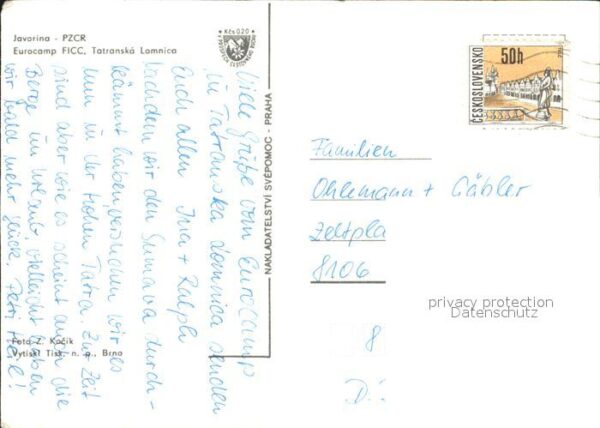 Javorina - PZCR
Eurocamp FICC, Tatranská Lomnica
Kčs 0,20
Viele Grüße vom Eurocamp
in Tatranska Lomnica senden
Euch allen Ina + Ralph
Nachdem wir den Sumava durch-
kämmt haben, versuchen wir es
nun in der Hohen Tatra. Zur Zeit
sind aber wie es scheint auch die
Berge im Urlaub, vielleicht haben
wir bald mehr Glück. Petri Heil!
Foto Z. Kočík
Vytiskl Tisk, n. p., Brno
NAKLADATELSTVÍ SVÉPOMOC - PRAHA
ČESKOSLOVENSKO
50h
Familien
Ohlemann + Gäbler
Zeltpla
8106
8
D
privacy protection
Datenschutz